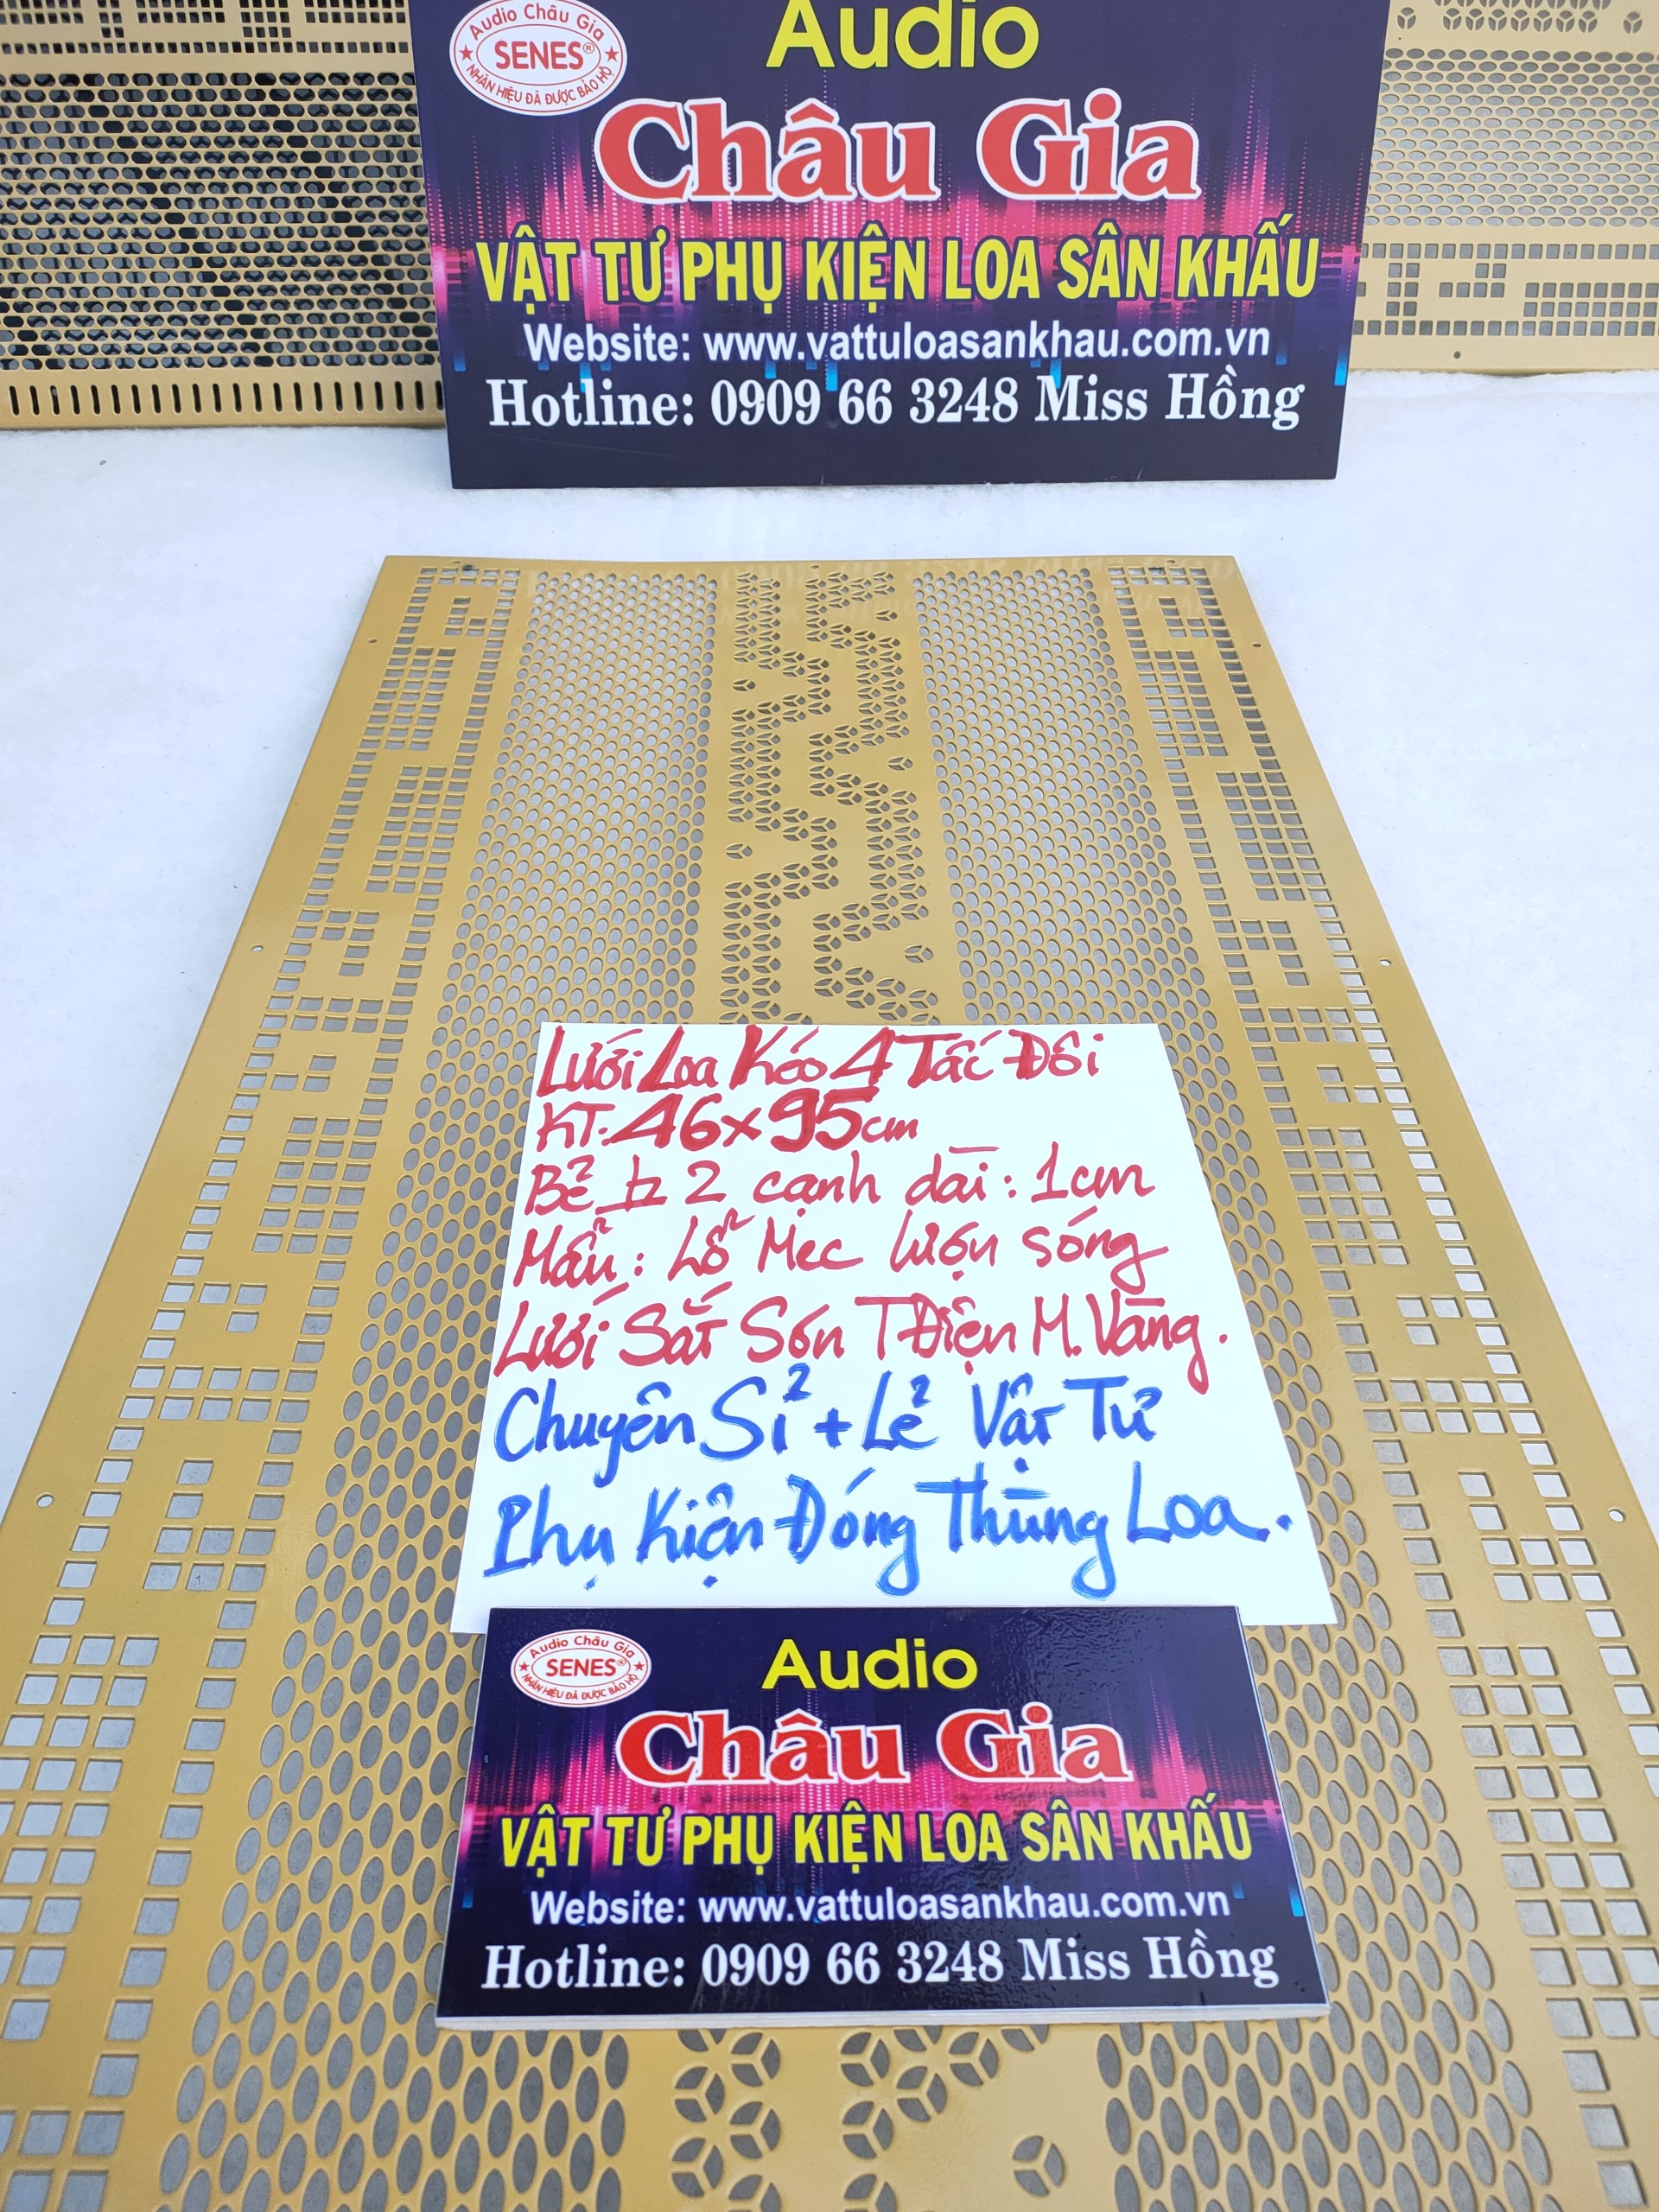 Audio Châu Gia
SENES®
NHÃN HIỆU ĐÃ ĐƯỢC BẢO HỘ
Audio
Châu Gia
VẬT TƯ PHỤ KIỆN LOA SÂN KHẤU
Website: www.vattuloasankhau.com.vn
Hotline: 0909 66 3248 Miss Hồng
Lưới Loa Kéo 4 Tấc Đôi
KT: 46x95cm
Bẻ 2 cạnh dài: 1cm
Mẫu: Lỗ Mec lượn sóng
Lưới Sắt Sơn T Điện M. Vàng.
Chuyên Sỉ + Lẻ Vật Tư
Phụ Kiện Đóng Thùng Loa.
Audio Châu Gia
SENES®
NHÃN HIỆU ĐÃ ĐƯỢC BẢO HỘ
Audio
Châu Gia
VẬT TƯ PHỤ KIỆN LOA SÂN KHẤU
Website: www.vattuloasankhau.com.vn
Hotline: 0909 66 3248 Miss Hồng